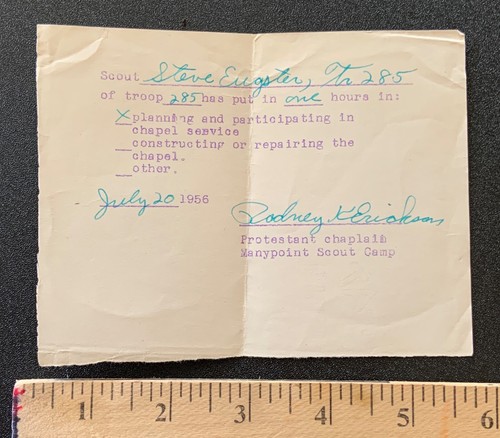 Scout Steve Eugster, Tr 285
of troop 285 has put in one hours in:
X planning and participating in
chapel service
__constructing or repairing the
chapel.
__other.
July 20 1956
Rodney K Erickson
Protestant chaplain
Manypoint Scout Camp
1 2 3 4 5 6